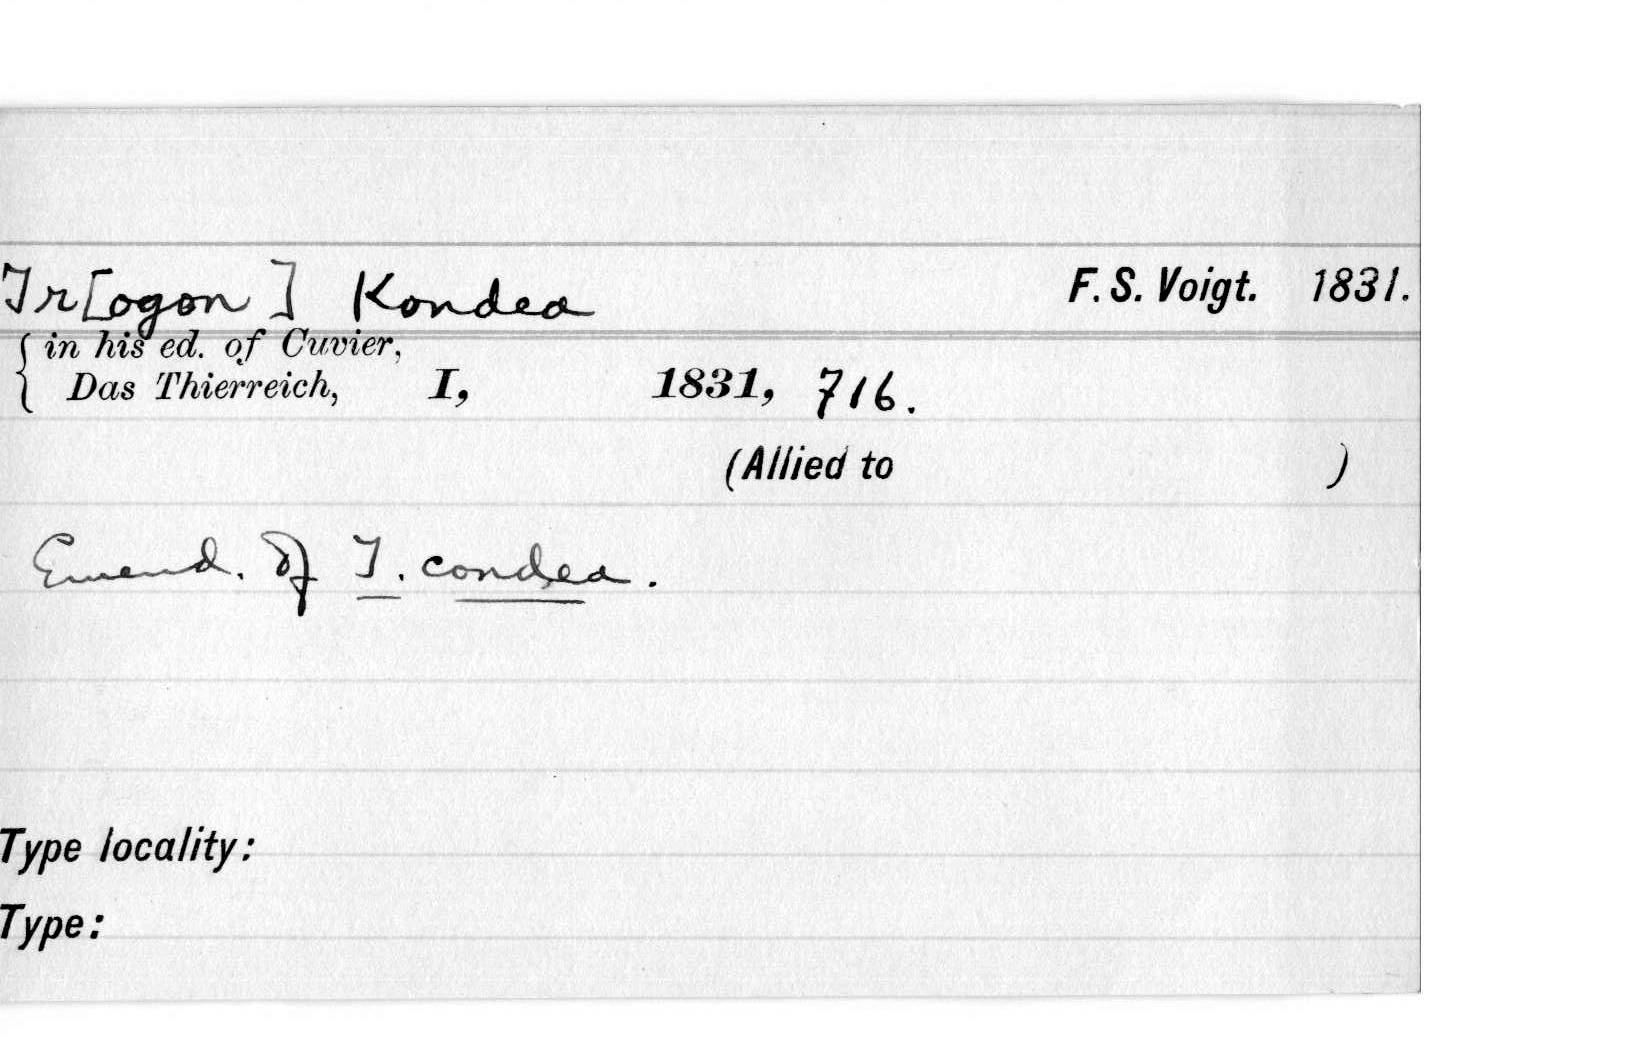 Tr[ogon] Kondea F. S. Voigt. 1831.
{ in his ed. of Cuvier,
Das Thierreich, I, 1831, 716.
(Allied to )
Emend. of T. condea.
Type locality:
Type: